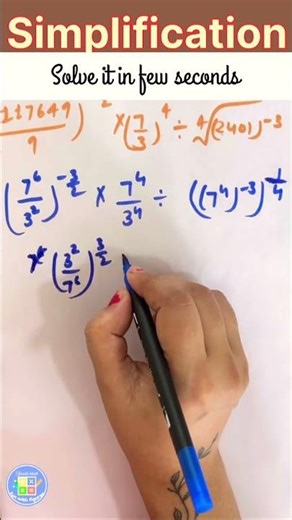 Simplification
Solve it in few seconds
117649/9) ² × (7/3)⁴ ÷ ⁴√(2401)⁻³
(7⁶/3²)^(-3/2) × 7⁴/3⁴ ÷ ((7⁴)⁻³)^(1/4)
(3²/7⁶)^(3/2)